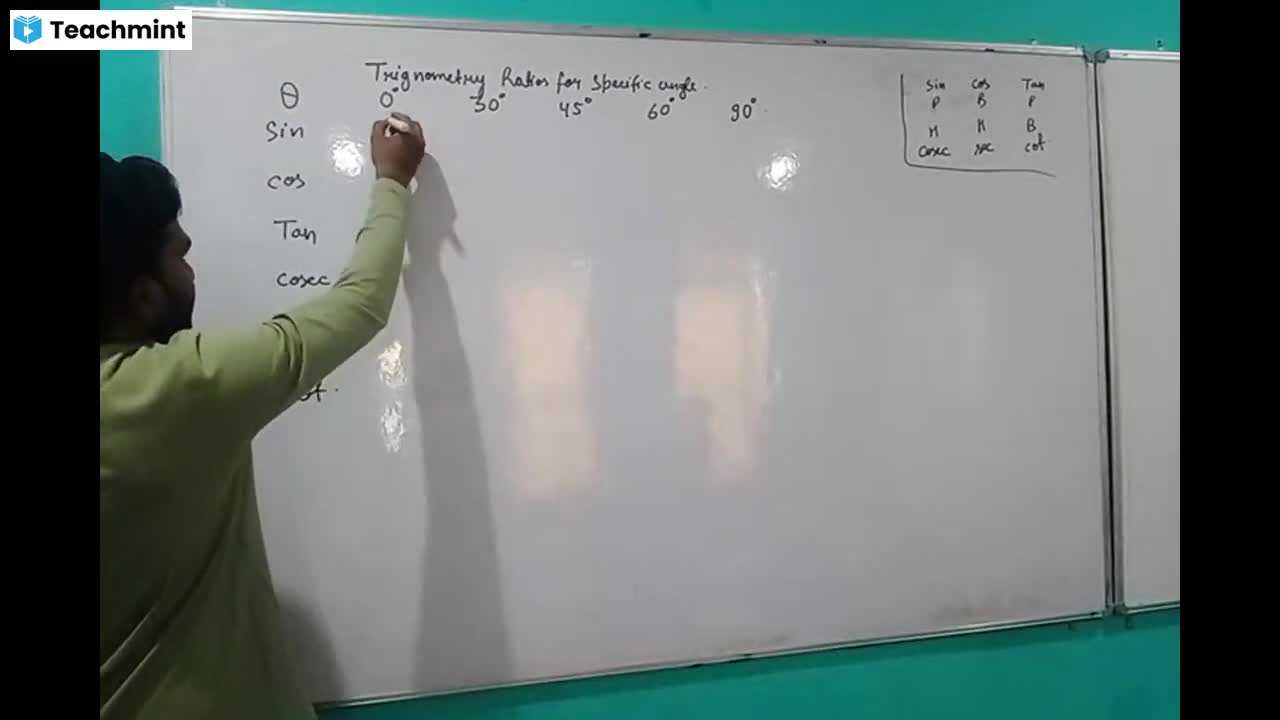 Teachmint
Trignometry Ratios for specific angle.
θ 0° 30° 45° 60° 90°
Sin
cos
Tan
cosec
Sin cos Tan
P B P
H H B
cosec sec cot